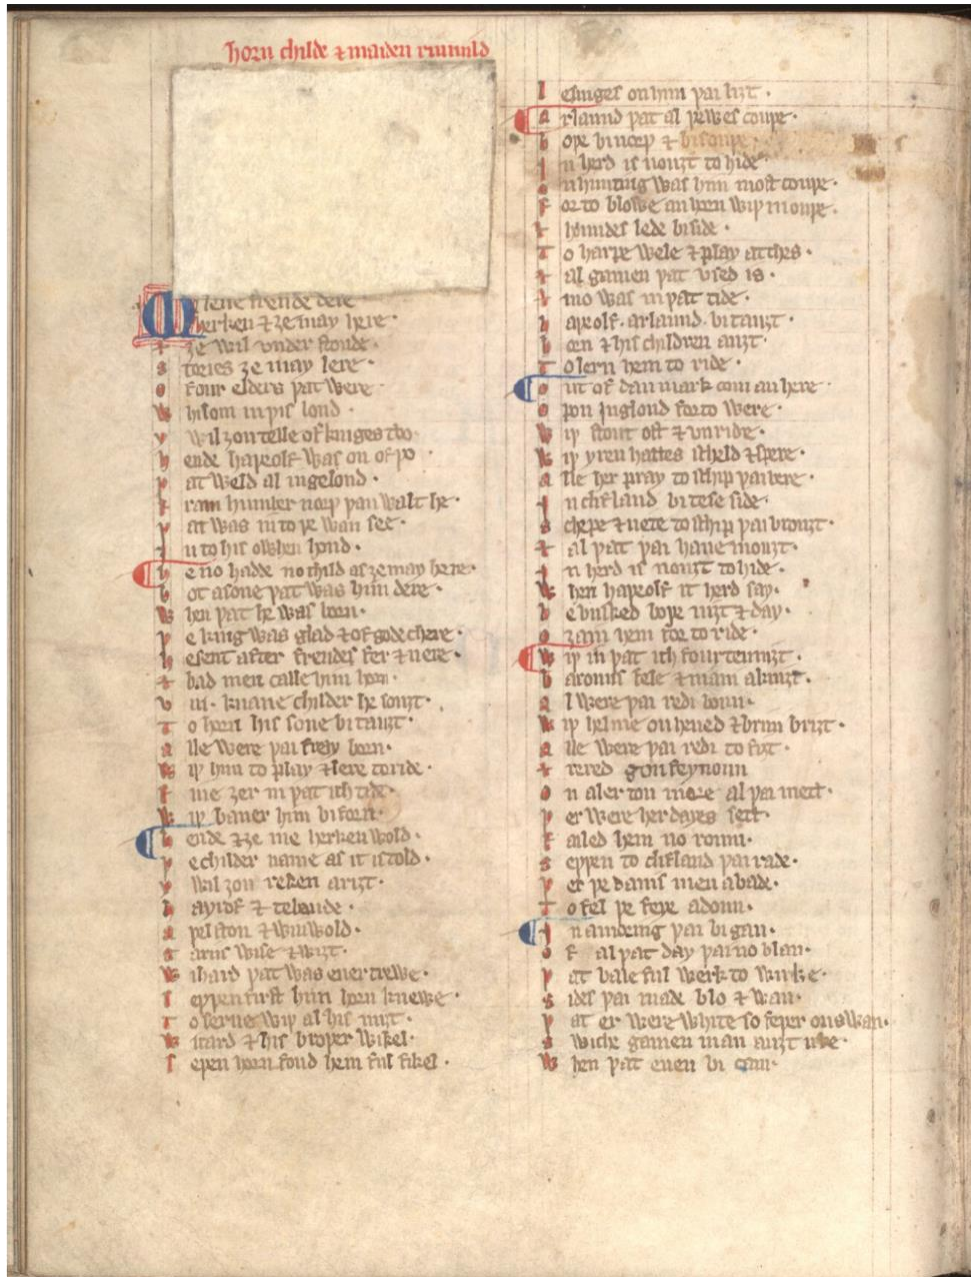 horn childe ⁊ maiden rimnild
Mi leue frende dere
herken ⁊ ȝe may here
⁊ ȝe wil vnder stonde ·
stories ȝe may lere
of our elders þat were
whilom in þis lond ·
y wil ȝou telle of kinges tvo
hende haþeolf was on of þo ·
þat weld al ingelond ·
fram humber norþ þan walt he ·
þat was in to þe wan see ·
in to his owhen hond ·
he no hadde no child as ȝe may here ·
bot a sone þat was him dere ·
when þat he was born ·
þe king was glad ⁊ of gode chere ·
he sent after frendes fer ⁊ nere ·
⁊ bad men calle him horn ·
viii · knaue childer he souȝt ·
to horn his sone bitauȝt ·
alle were þai frely born ·
wiþ him to play ⁊ lere to ride ·
fiue ȝer in þat ich tide ·
wiþ baner him biforn ·
hende ⁊ ȝe me herken wold ·
þe childer name as it is told ·
y wil ȝou reken ariȝt ·
haþerof ⁊ tebaude ·
aþelston ⁊ winwold ·
gariis wise ⁊ wiȝt ·
wihard þat was euer trewe ·
seþþen first him horn knewe ·
to serue wiþ al his miȝt ·
wicard ⁊ his broþer wikel ·
seþen horn fond hem ful fikel ·
lesinges on him þai liȝt ·
arlaund þat al þewes couþe ·
boþe bi norþ ⁊ bi souþe ·
in herd is nouȝt to hide
on hunting was him most couþe ·
for to blowe an horn wiþ mouþe ·
⁊ houndes lede biside ·
to harpe wele ⁊ play at ches ·
⁊ al gamen þat vsed is ·
⁊ mo was in þat tide ·
haþeolf · arlaund · bitauȝt
horn ⁊ his children auȝt ·
to lern hem to ride ·
out of danmark com an here
opon inglond forto were ·
wiþ stout ost ⁊ vnride ·
wiþ yren hattes scheld ⁊ spere ·
alle her pray to schip þai bere ·
in clifland bi tese side ·
schepe ⁊ nete to schip þai brouȝt ·
⁊ al þat þai haue mouȝt ·
in herd is nouȝt to hide ·
when haþeolf it herd say ·
he busked boþe niȝt ⁊ day ·
oȝain hem for to ride ·
wiþ in þat ich fourtenniȝt ·
barouns fele ⁊ mani a kniȝt ·
al were þai redi boun ·
wiþ helme on heued ⁊ brini briȝt ·
alle were þai redi to fiȝt ·
⁊ rered gonfeynoun
on alerton more al þai mett ·
þer were her dayes sett ·
failed hem no roum ·
seþþen to clifland þai rade ·
þer þe danis men abade ·
to fel þe feye adoun ·
in amorning þai bigan ·
of al þat day þai no blan ·
þat baleful werk to wirke ·
sides þai made blo ⁊ wan ·
þat er were white so feþer on swan ·
swiche gamen man auȝt irke ·
when þat euen bi cam ·